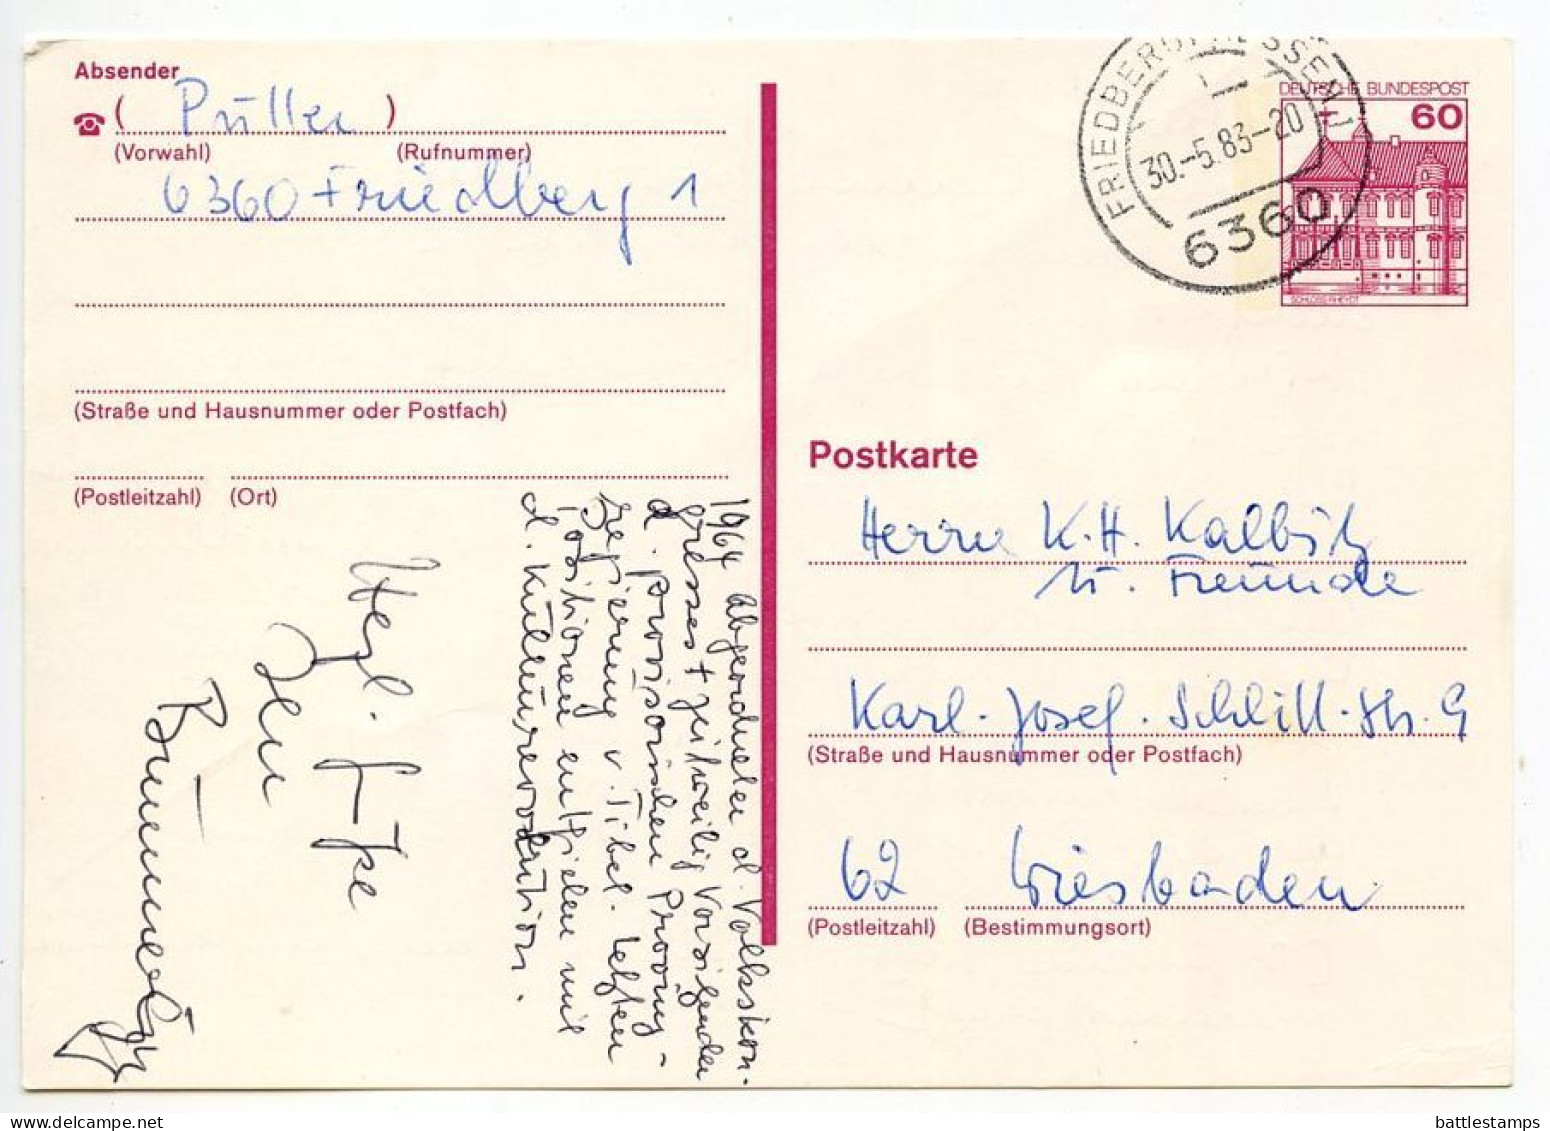 Absender
( Püller )
(Vorwahl) (Rufnummer)
6360 Friedberg 1
(Straße und Hausnummer oder Postfach)
(Postleitzahl) (Ort)
1964 Abgeordneter d. Volkskon-
gresses + zeitweilig Vorsitzender
d. provisorischen Provinz-
regierung v. Tibet. letzten
Positionen entfielen mit
d. Kulturrevolution.
Herzl. Grüße
Ihr
FRIEDBERG, HESSEN 1
30.-5.83-20
6360
DEUTSCHE BUNDESPOST
60
SCHLOSS RHEYDT
Postkarte
Herrn K. H. Kalbitz
u. Freunde
Karl-Josef-Schlitt-Str. 9
(Straße und Hausnummer oder Postfach)
62 Wiesbaden
(Postleitzahl) (Bestimmungsort)
battlestamps